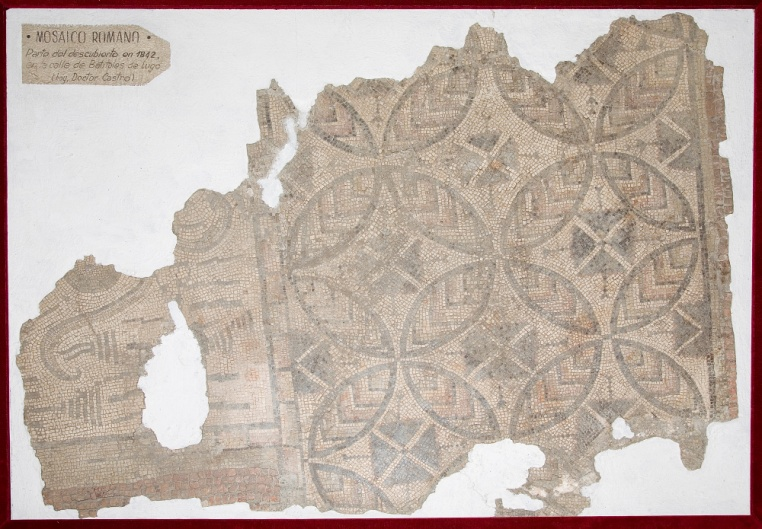 • MOSAICO ROMANO •
Parte del descubierto en 1842,
en la calle de Batitales de Lugo
(hoy, Doctor Castro)